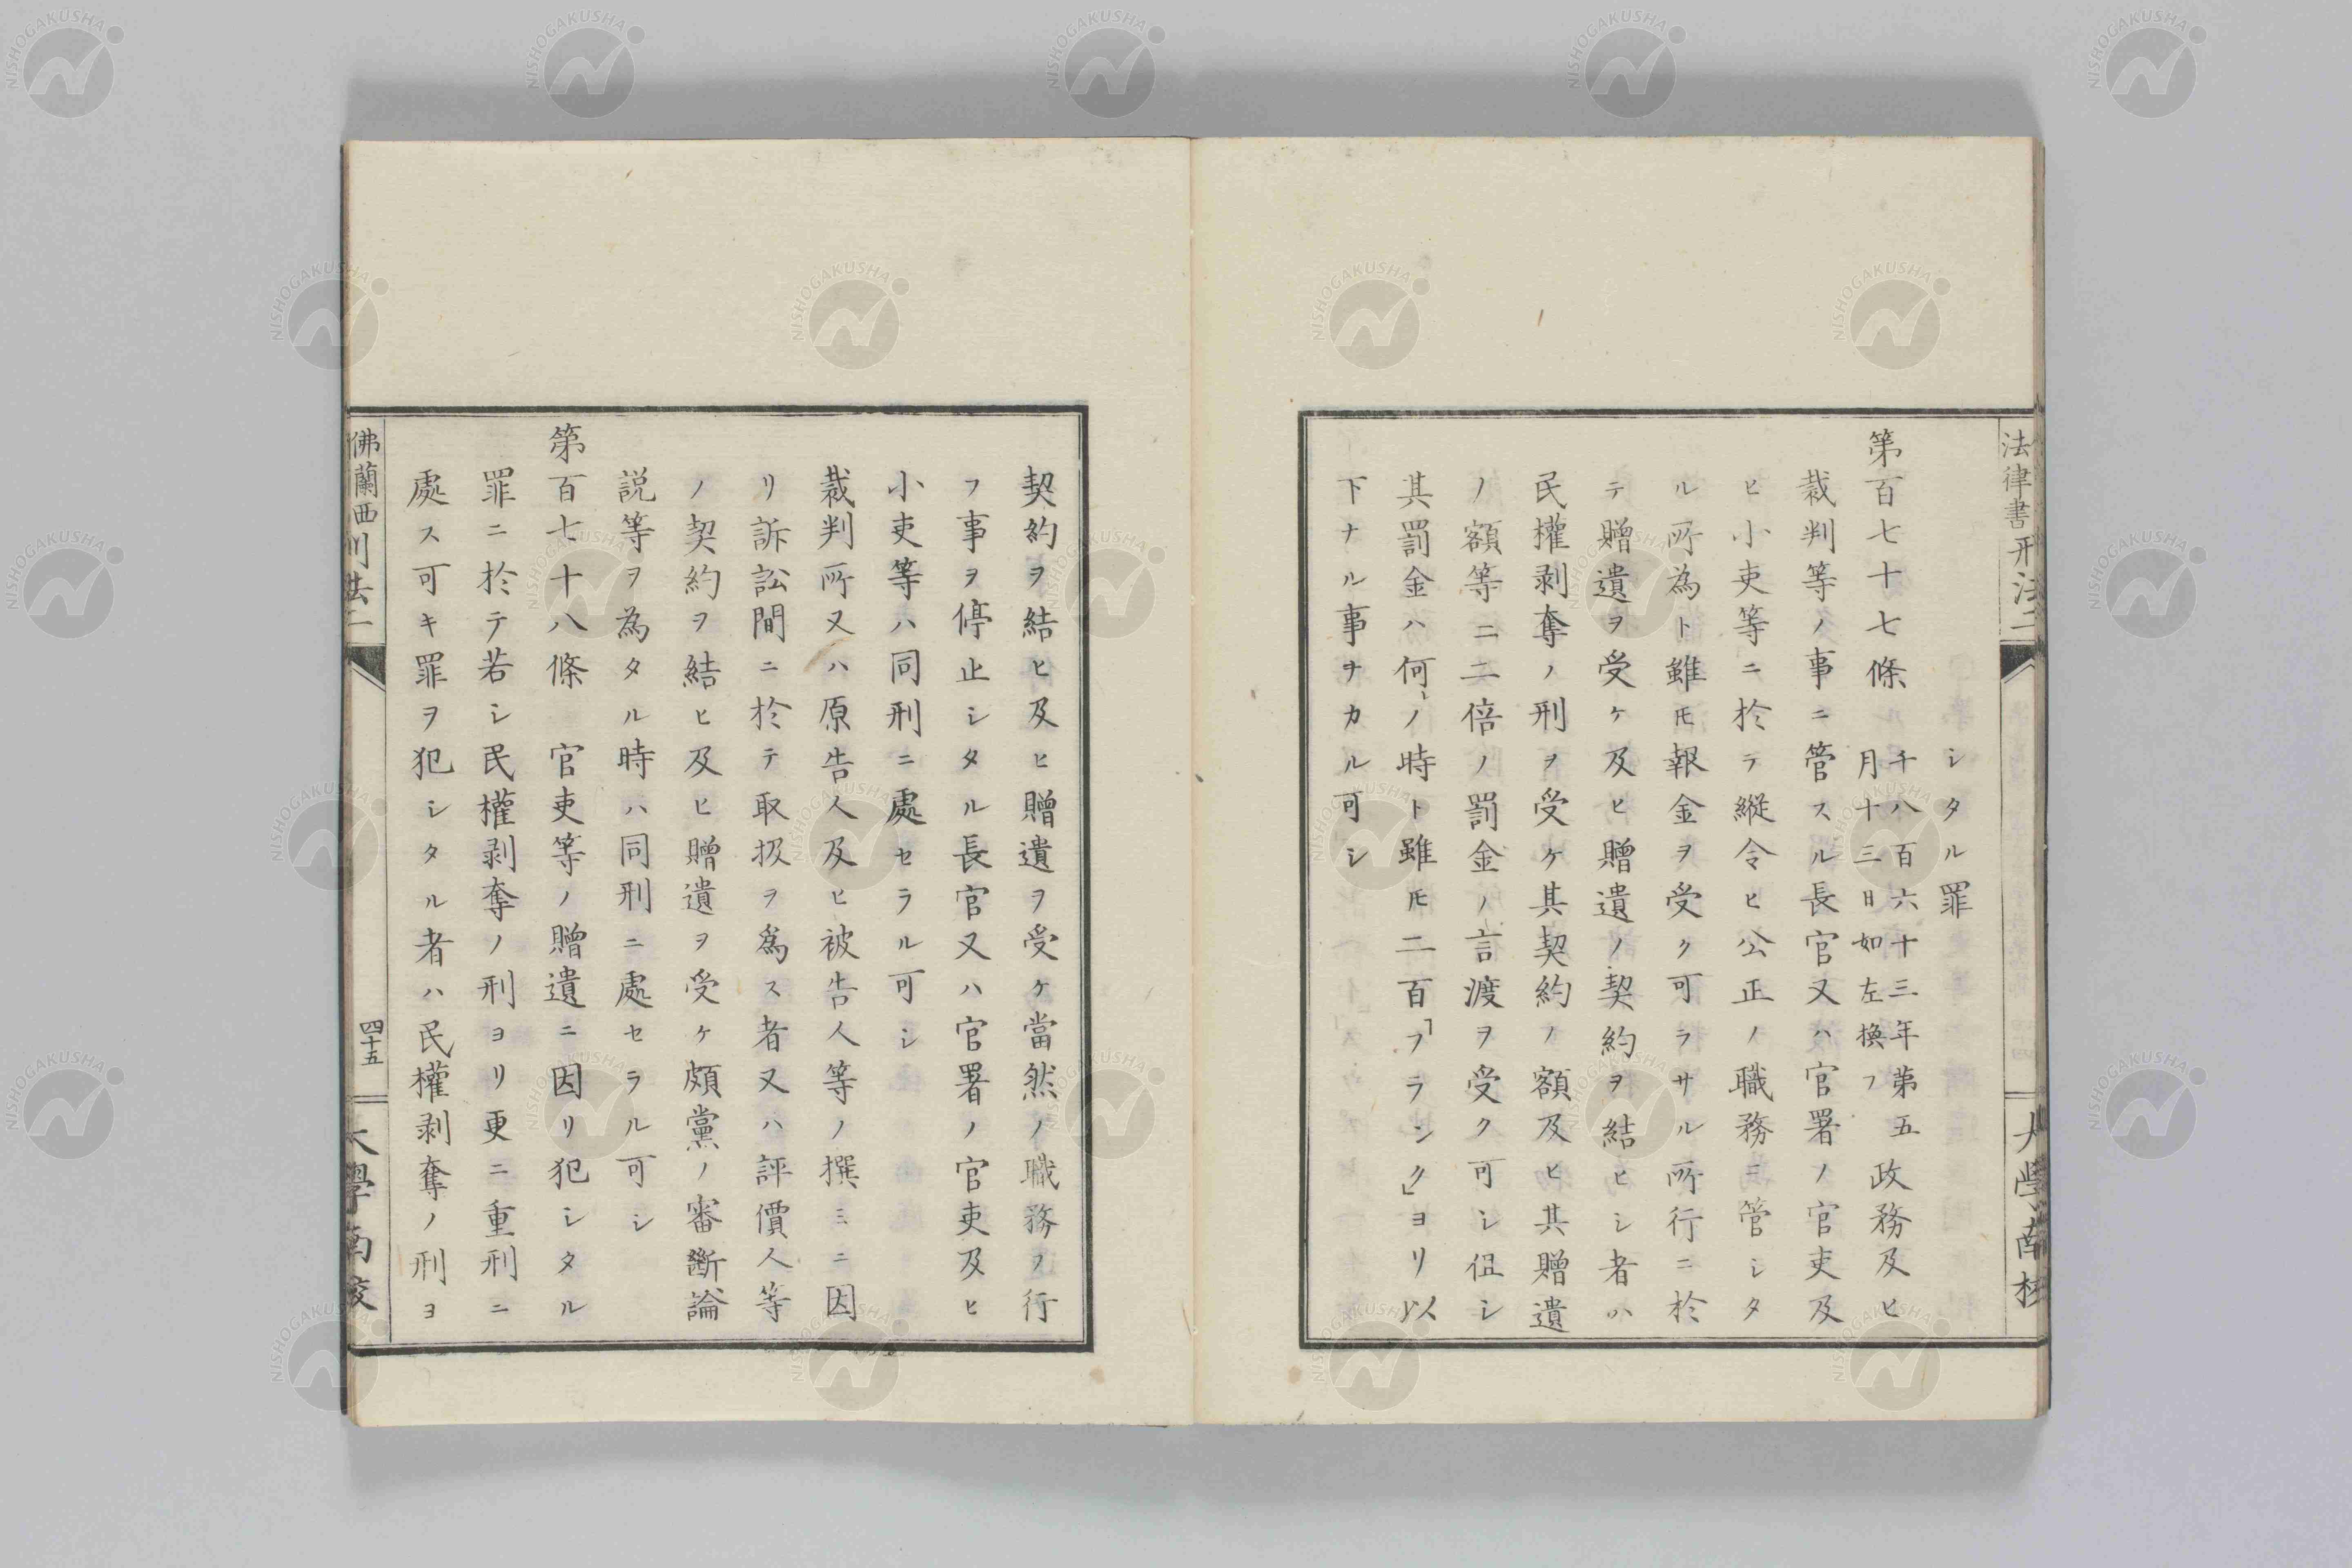 法律書刑法二
大學南校
シタル罪
第百七十七條 千八百六十三年第五月十三日如左換フ 政務及ヒ
裁判等ノ事ニ管スル長官又ハ官署ノ官吏及
ヒ小吏等ニ於テ縱令ヒ公正ノ職務ニ管シタ
ル所為ト雖𪜈報金ヲ受ク可ラサル所行ニ於
テ贈遺ヲ受ケ及ヒ贈遺ノ契約ヲ結ヒシ者ハ
民權剥奪ノ刑ヲ受ケ其契約ノ額及ヒ其贈遺
ノ額等ニ二倍ノ罰金ノ言渡ヲ受ク可シ但シ
其罰金ハ何レノ時ト雖𪜈二百「フランク」ヨリ以
下ナル事ナカル可シ
契約ヲ結ヒ及ヒ贈遺ヲ受ケ當然ノ職務ヲ行
フ事ヲ停止シタル長官又ハ官署ノ官吏及ヒ
小吏等ハ同刑ニ處セラル可シ
裁判所又ハ原告人及ヒ被告人等ノ撰ミニ因
リ訴訟間ニ於テ取扱ヲ爲ス者又ハ評價人等
ノ契約ヲ結ヒ及ヒ贈遺ヲ受ケ頗黨ノ審斷論
説等ヲ為タル時ハ同刑ニ處セラル可シ
第百七十八條 官吏等ノ贈遺ニ因リ犯シタル
罪ニ於テ若シ民權剥奪ノ刑ヨリ更ニ重刑ニ
處ス可キ罪ヲ犯シタル者ハ民權剥奪ノ刑ヨ
佛蘭西刑法二
四十五
大學南校
NISHOGAKUSHA